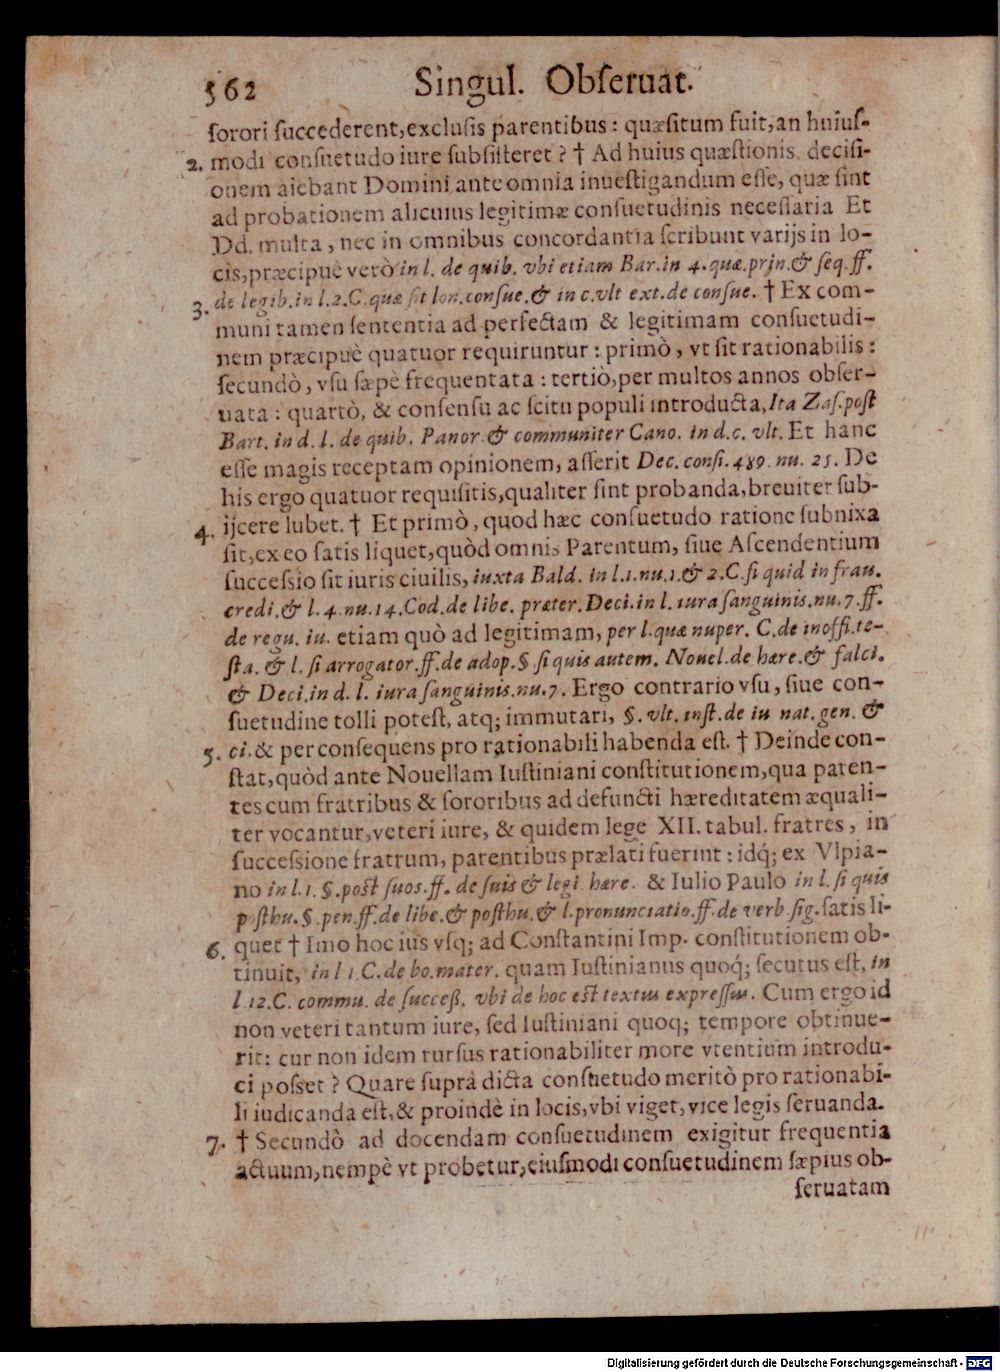 562 Singul. Obſeruat.
ſorori ſuccederent,excluſis parentibus: quæſitum fuit,an huiuſ-
2. modi conſuetudo iure ſubſiſteret? † Ad huius quæſtionis deciſi-
onem aiebant Domini ante omnia inueſtigandum eſſe, quæ ſint
ad probationem alicuius legitimæ conſuetudinis neceſſaria Et
Dd. multa, nec in omnibus concordantia ſcribunt varijs in lo-
cis,præcipuè verò in l. de quib. vbi etiam Bar.in 4.quæ.prin.& ſeq.ff.
3. de legib.in l.2.C.quæ ſit lon.conſue.& in c.vlt ext.de conſue. † Ex com-
muni tamen ſententia ad perfectam & legitimam conſuetudi-
nem præcipuè quatuor requiruntur: primò, vt ſit rationabilis:
ſecundò, vſu ſæpè frequentata: tertiò,per multos annos obſer-
uata: quartò, & conſenſu ac ſcitu populi introducta,Ita Zaſ.poſt
Bart. in d. l. de quib. Panor & communiter Cano. in d.c. vlt. Et hanc
eſſe magis receptam opinionem, aſſerit Dec. conſi.489. nu. 25. De
his ergo quatuor requiſitis,qualiter ſint probanda,breuiter ſub-
4. ijcere lubet. † Et primò, quod hæc conſuetudo ratione ſubnixa
ſit,ex eo ſatis liquet,quòd omnis Parentum, ſiue Aſcendentium
ſucceſſio ſit iuris ciuilis, iuxta Bald. in l.1.nu.1.& 2.C.ſi quid in frau.
credi.& l. 4. nu.14.Cod.de libe. præter. Deci.in l. iura ſanguinis.nu.7.ff.
de regu. iu. etiam quò ad legitimam, per l.quæ nuper. C.de inoffi.te-
ſta. & l. ſi arrogator.ff.de adop.§ ſi quis autem. Nouel.de hære.& falci.
& Deci.in d. l. iura ſanguinis.nu.7. Ergo contrario vſu, ſiue con-
ſuetudine tolli poteſt, atq; immutari, §. vlt. inſt.de iu nat.gen. &
5. ci.& per conſequens pro rationabili habenda eſt. † Deinde con-
ſtat,quòd ante Nouellam Iuſtiniani conſtitutionem,qua paren-
tes cum fratribus & ſororibus ad defuncti hæreditatem æquali-
ter vocantur,veteri iure, & quidem lege XII. tabul. fratres, in
ſucceſsione fratrum, parentibus prælati fuerint: idq́; ex Vlpia-
no in l.1. §.poſt ſuos.ff. de ſuis & legi hære. & Iulio Paulo in l. ſi quis
poſthu.§.pen.ff.de libe.& poſthu.& l.pronunciatio.ff.de verb ſig.ſatis li-
6. quet † Imo hoc ius vſq; ad Conſtantini Imp. conſtitutionem ob-
tinuit, in l 1.C.de bo.mater. quam Iuſtinianus quoq́; ſecutus eſt, in
l.12.C. commu. de ſucceß. vbi de hoc eſt textus expreſſus. Cum ergo id
non veteri tantum iure, ſed Iuſtiniani quoq; tempore obtinue-
rit: cur non idem rurſus rationabiliter more vtentium introdu-
ci poſset? Quare ſuprà dicta conſuetudo meritò pro rationabi-
li iudicanda eſt,& proindè in locis,vbi viget,vice legis ſeruanda.
7. † Secundò ad docendam conſuetudinem exigitur frequentia
actuum,nempè vt probetur,eiuſmodi conſuetudinem ſæpius ob-
ſeruatam
Digitalisierung gefördert durch die Deutsche Forschungsgemeinschaft - DFG